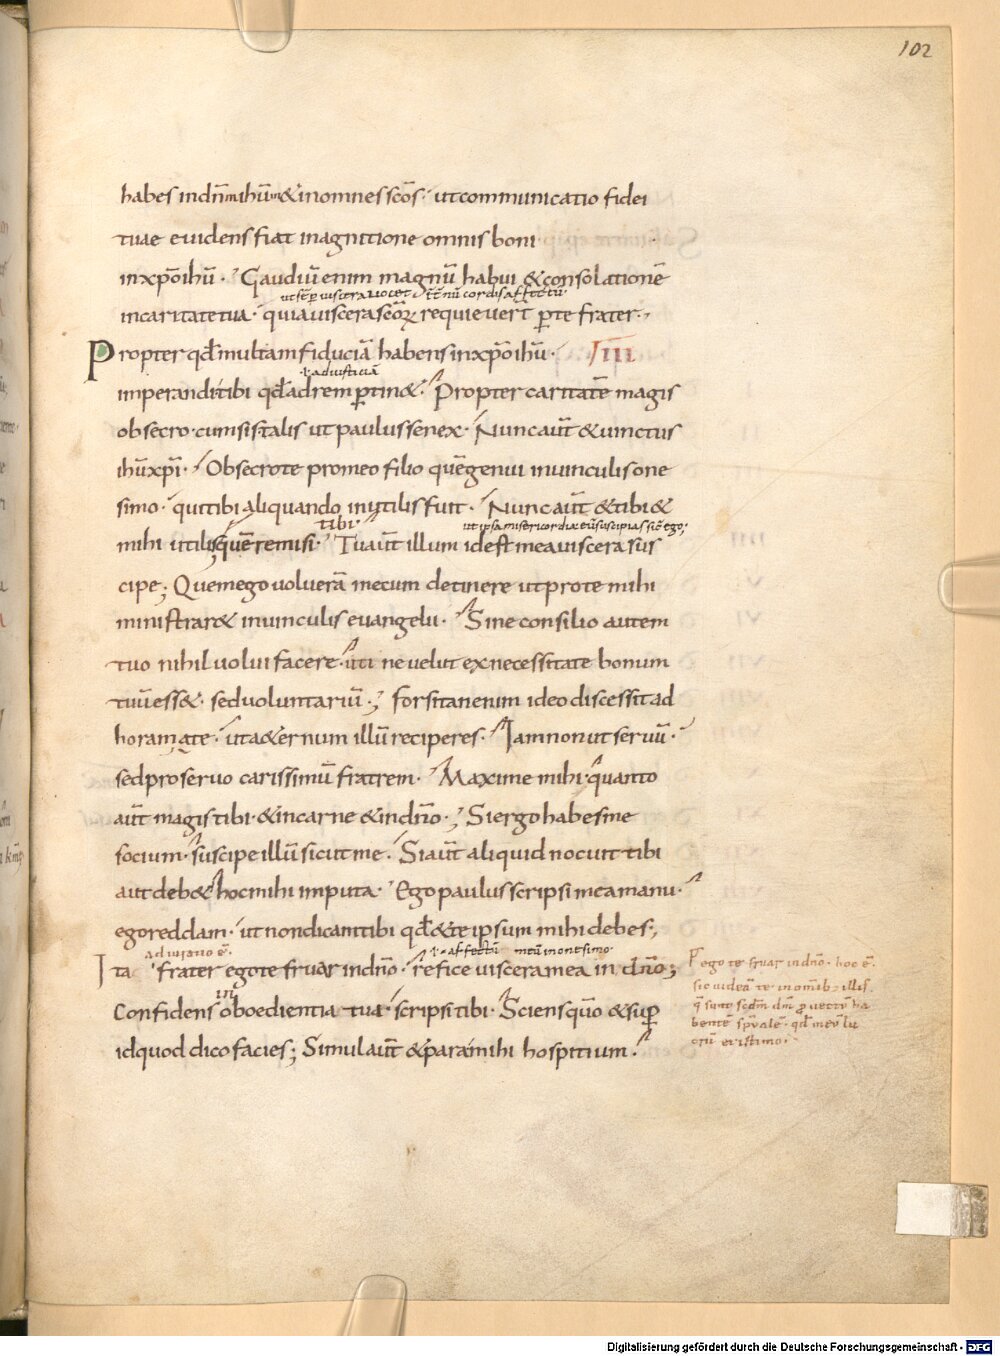 102
habes in dnm ihu & in omnes scos· ut communicatio fidei
tuae euidens fiat in agnitione omnis boni
in xpo ihu· Gaudiū enim magnū habui & consolationē
in caritate tua· quia uiscera scōꝝ requieuert̄ p̄ te frater·,
Propter qd̄ multam fiduciā habens in xpō ihū· IIII
ł ad iustitiā
imperandi tibi qd̄ ad rem ꝑtin&· Propter caritatē magis
obsecro· cum sis talis ut paulus senex· Nunc aūt & uinctus
ihū xpī· Obsecro te pro meo filio quē genui in uinculis one
simo· qui tibi aliquando inutilis fuit· Nunc aūt & tibi &
tibi· ut ipsa misericordiae eū suscipias sic̄ ego;
mihi utilis quē remisi· Tu aūt illum id est mea uiscera sus
cipe; Quem ego uoluerā mecum detinere ut pro te mihi
ministrar& in uinculis euangelii· Sine consilio autem
tuo nihil uolui facere· uti ne uelut ex necessitate bonum
tuū ess&· sed uoluntariū·; forsitan enim ideo discessit ad
horam a te· ut aeternum illū reciperes· Iam non ut seruū·
sed pro seruo carissimū fratrem· Maxime mihi· quanto
aūt magis tibi· & in carne & in dn̄o·; Si ergo habes me
socium· suscipe illū sicut me· Si aūt aliquid nocuit tibi
aut deb& hoc mihi imputa· Ego paulus scripsi mea manu·
ego reddam· ut non dicam tibi qd̄ & te ipsum mihi debes;
ł affectū meū in onesimo·
Ita frater ego te fruar in dn̄o· refice uiscera mea in dn̄o;
in
Confidens oboedientia tua· scripsi tibi· Sciens qūo & suꝑ
id quod dico facies; Simul aūt & para mihi hospitium·
ego te fruar in dn̄o· hoc ē·
sic uideā te in omib; illis·
Digitalisierung gefördert durch die Deutsche Forschungsgemeinschaft - DFG